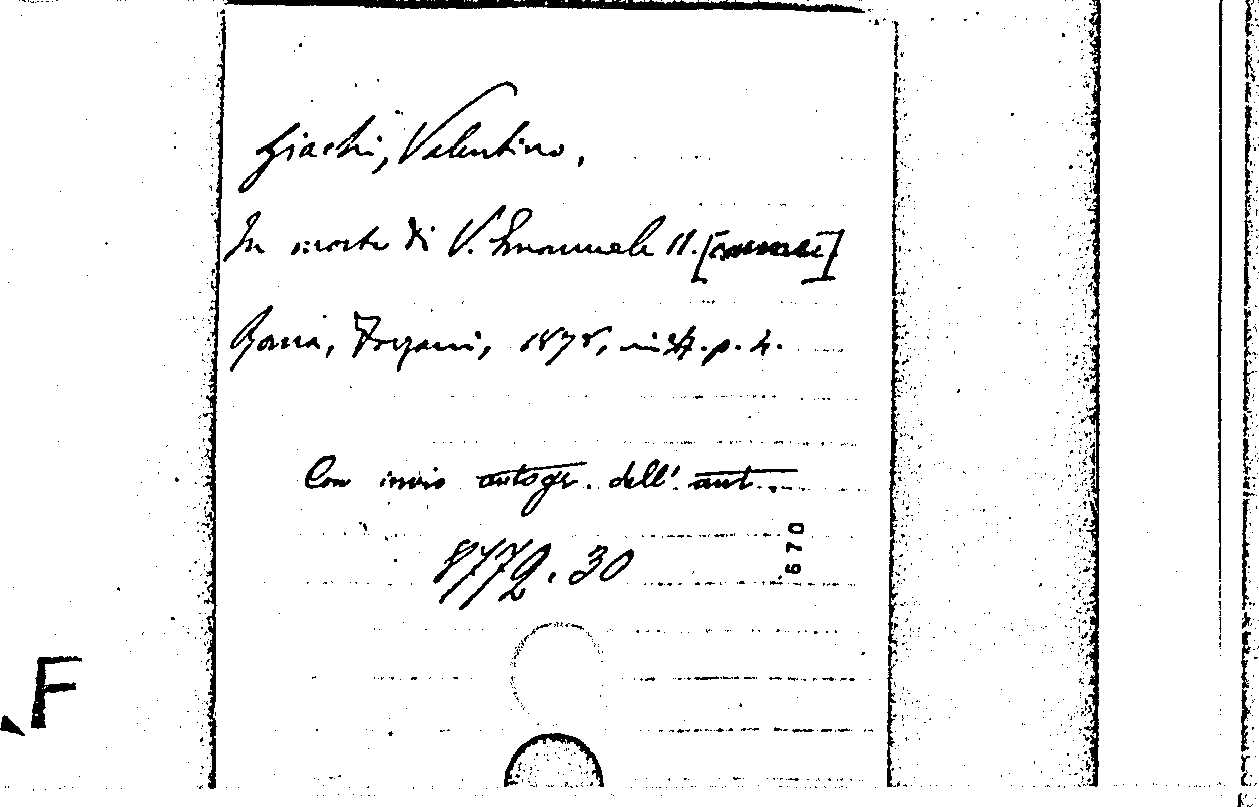 Giachi, Valentino,
In morte di V. Emanuele II.
Forzani, 1878, in 4. p. 4.
Con invio autogr. dell' aut.
8772.30
670
F